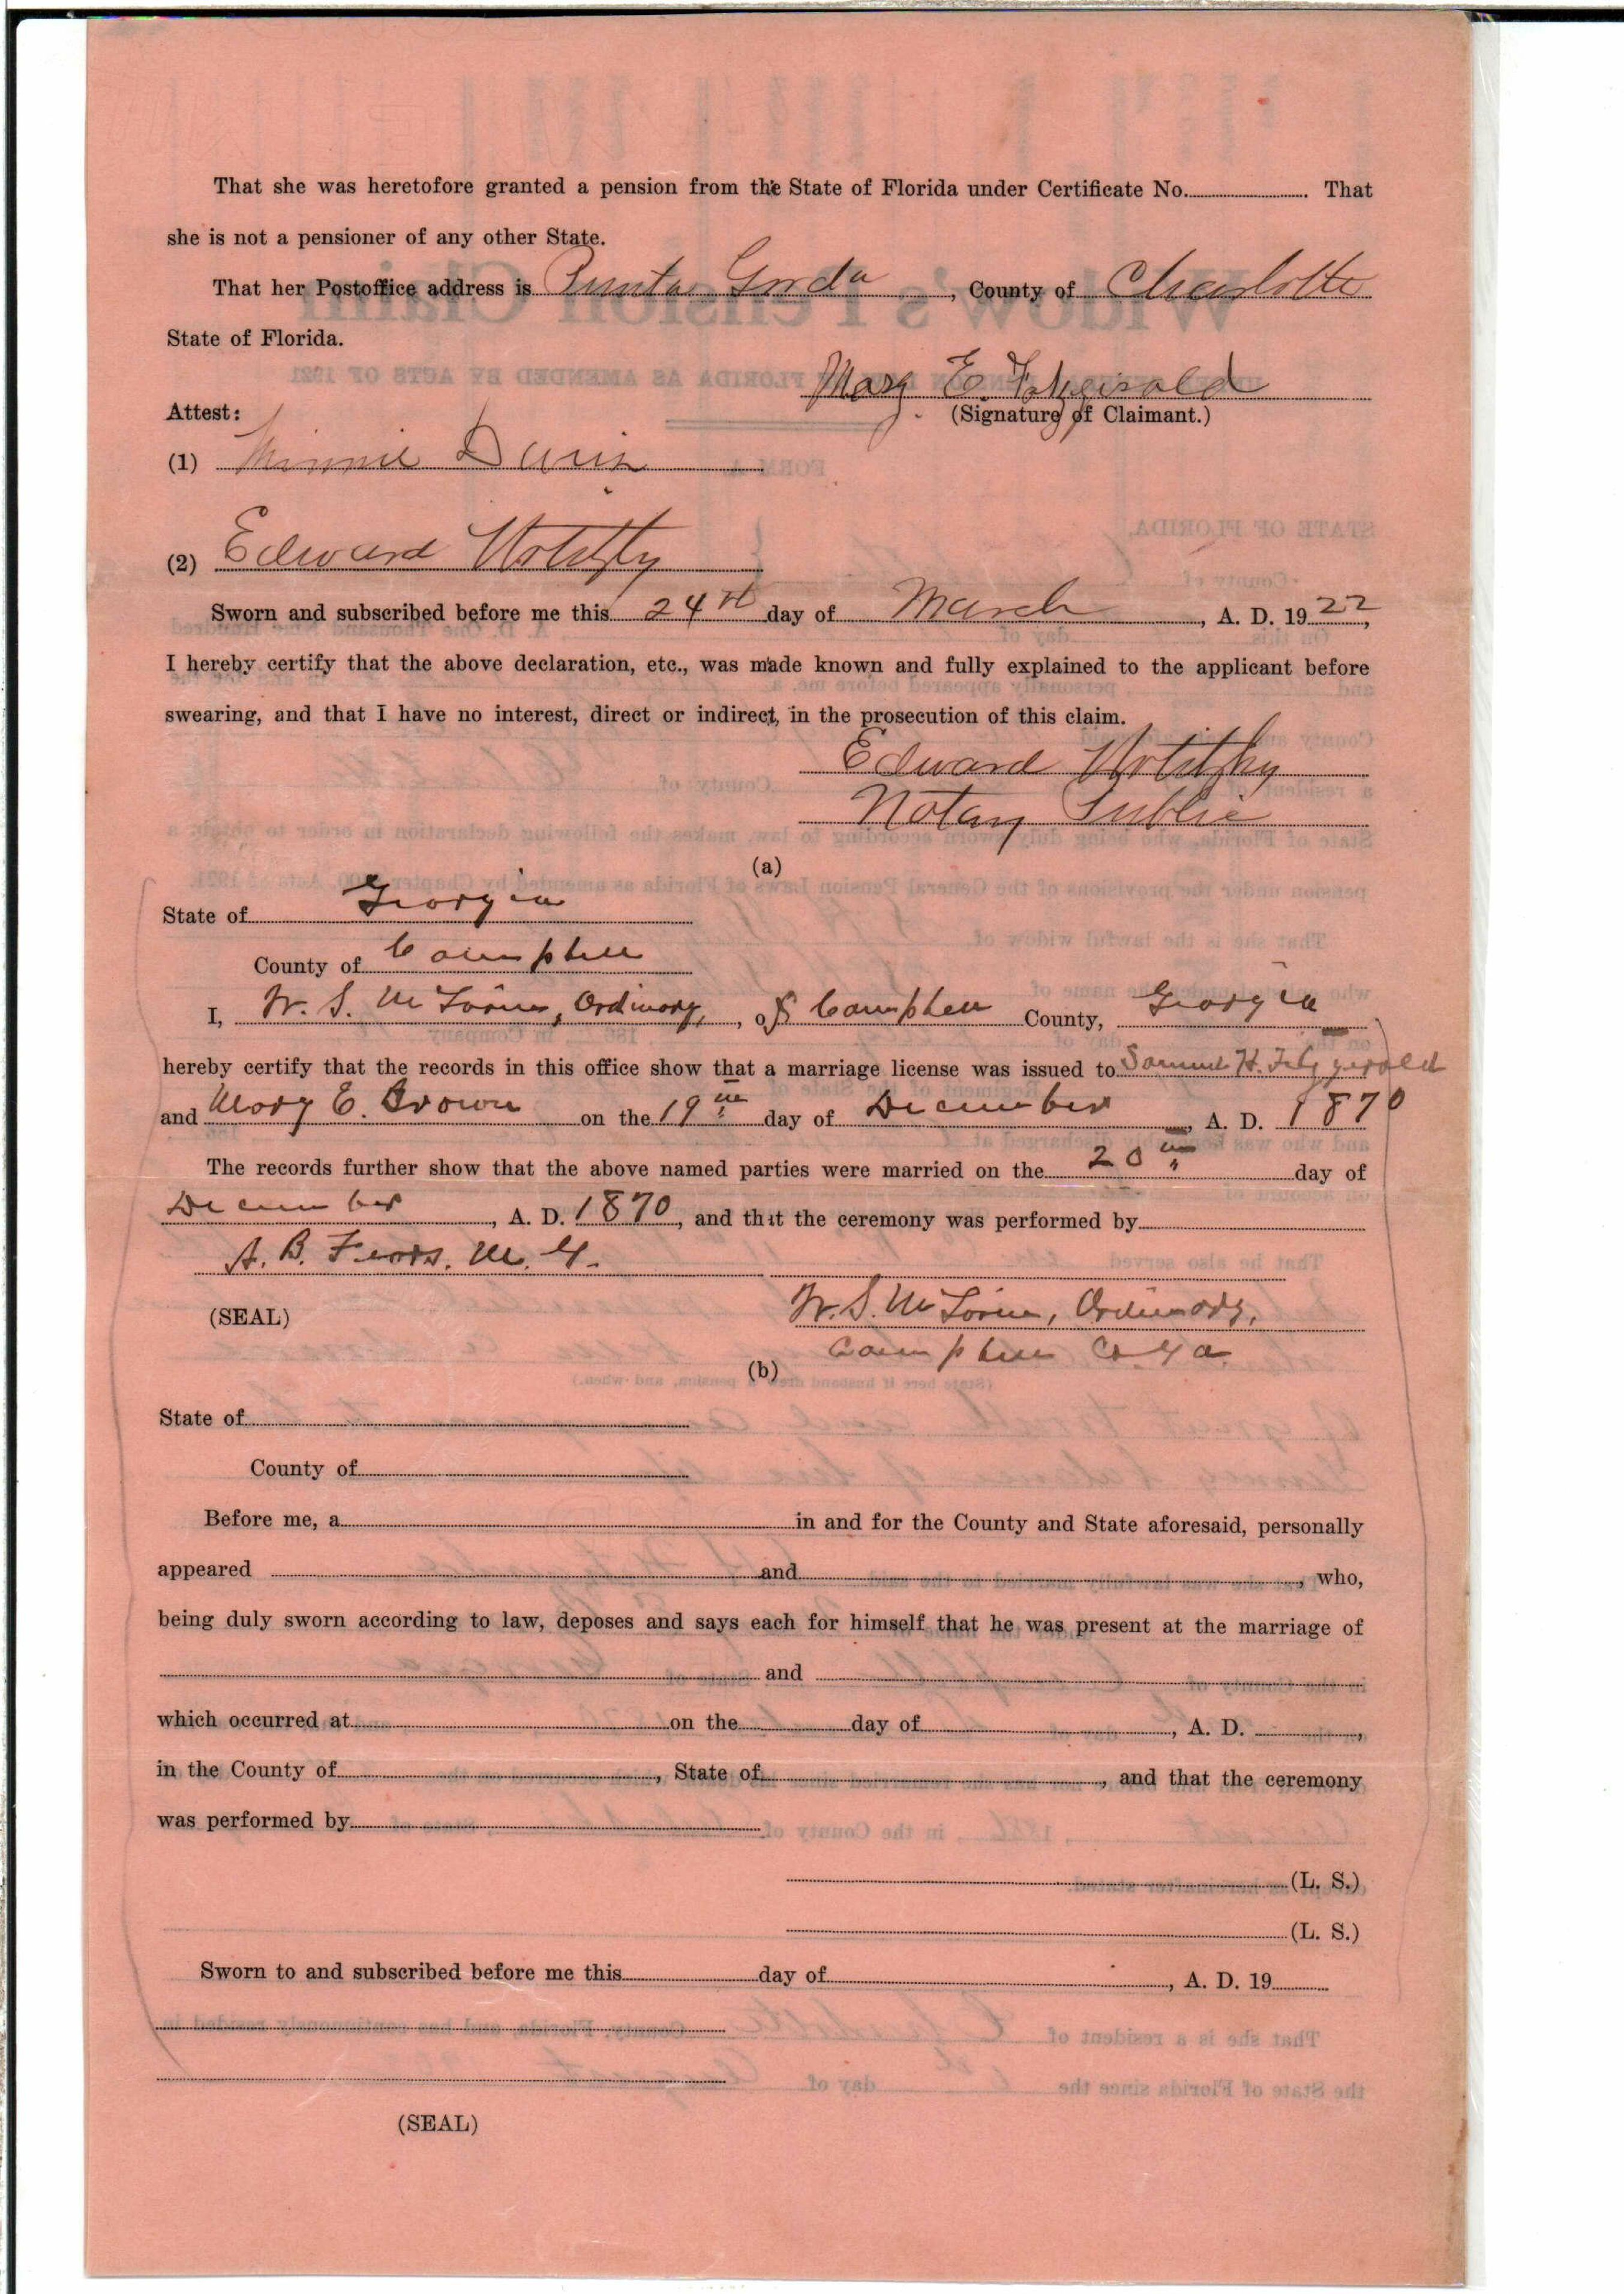 That she was heretofore granted a pension from the State of Florida under Certificate No. That
she is not a pensioner of any other State.
That her Postoffice address is Punta Gorda, County of Charlotte
State of Florida.
Mary E. Fitzgerald
Attest: (Signature of Claimant.)
(1) Minnie Davis
(2) Edward
Sworn and subscribed before me this 24th day of March, A. D. 1922,
I hereby certify that the above declaration, etc., was made known and fully explained to the applicant before
swearing, and that I have no interest, direct or indirect, in the prosecution of this claim.
Edward
Notary Public
(a)
State of Georgia
County of Campbell
I, W. S. Ordinary, of Campbell County, Georgia
hereby certify that the records in this office show that a marriage license was issued to Samuel H. Fitzgerald
and Mary E. Brown on the 19th day of December, A. D. 1870
The records further show that the above named parties were married on the 20th day of
December, A. D. 1870, and that the ceremony was performed by
A. B. M. G.
(SEAL) W. S. Ordinary,
Campbell Co Ga
(b)
State of
County of
Before me, a in and for the County and State aforesaid, personally
appeared and , who,
being duly sworn according to law, deposes and says each for himself that he was present at the marriage of
and
which occurred at on the day of , A. D. ,
in the County of , State of , and that the ceremony
was performed by
(L. S.)
(L. S.)
Sworn to and subscribed before me this day of , A. D. 19
(SEAL)